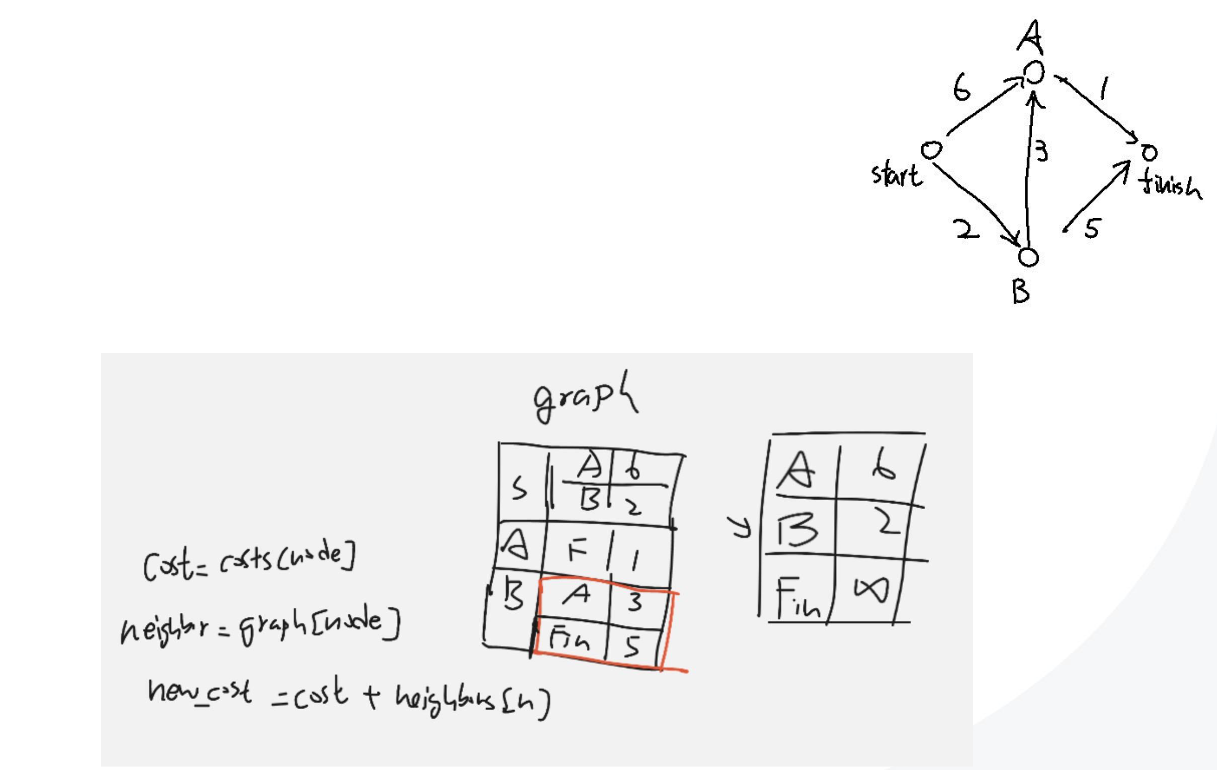 A
6
1
start
3
finish
2
5
B
graph
S A 6
B 2
A F 1
B A 3
Fin 5
A 6
B 2
Fin ∞
Cost = costs[node]
neighbor = graph[node]
new_cost = cost + neighbors[n]